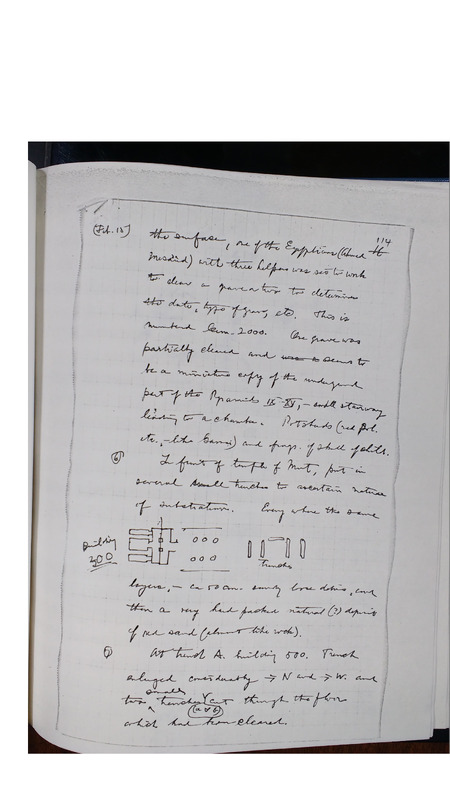 114
(Feb. 15) the surface, one of the Egyptians (Ahmed
) with three helpers was set to work
to clear a grave or two to determine
the date, type of grave, etc. This is
numbered 2000. One grave was
partially cleared and seems to
be a miniature copy of the underground
part of the Pyramids - small stairway
leading to a chamber. Potsherds (red pol.
etc., - like ) and frags. of shell of
⑥ In front of temple of Mut, put in
several small trenches to ascertain nature
of substratum. Every where the same
Building
300
Trenches
layers, - ca 50 cm. sandy loose debris, and
then a very hard packed natural (?) deposit
of red sand (almost like rock).
At trench A. building 500. Trench
enlarged considerably → N and → W. and
small
two trenches cut through the floor
(a & b)
which had been cleared.